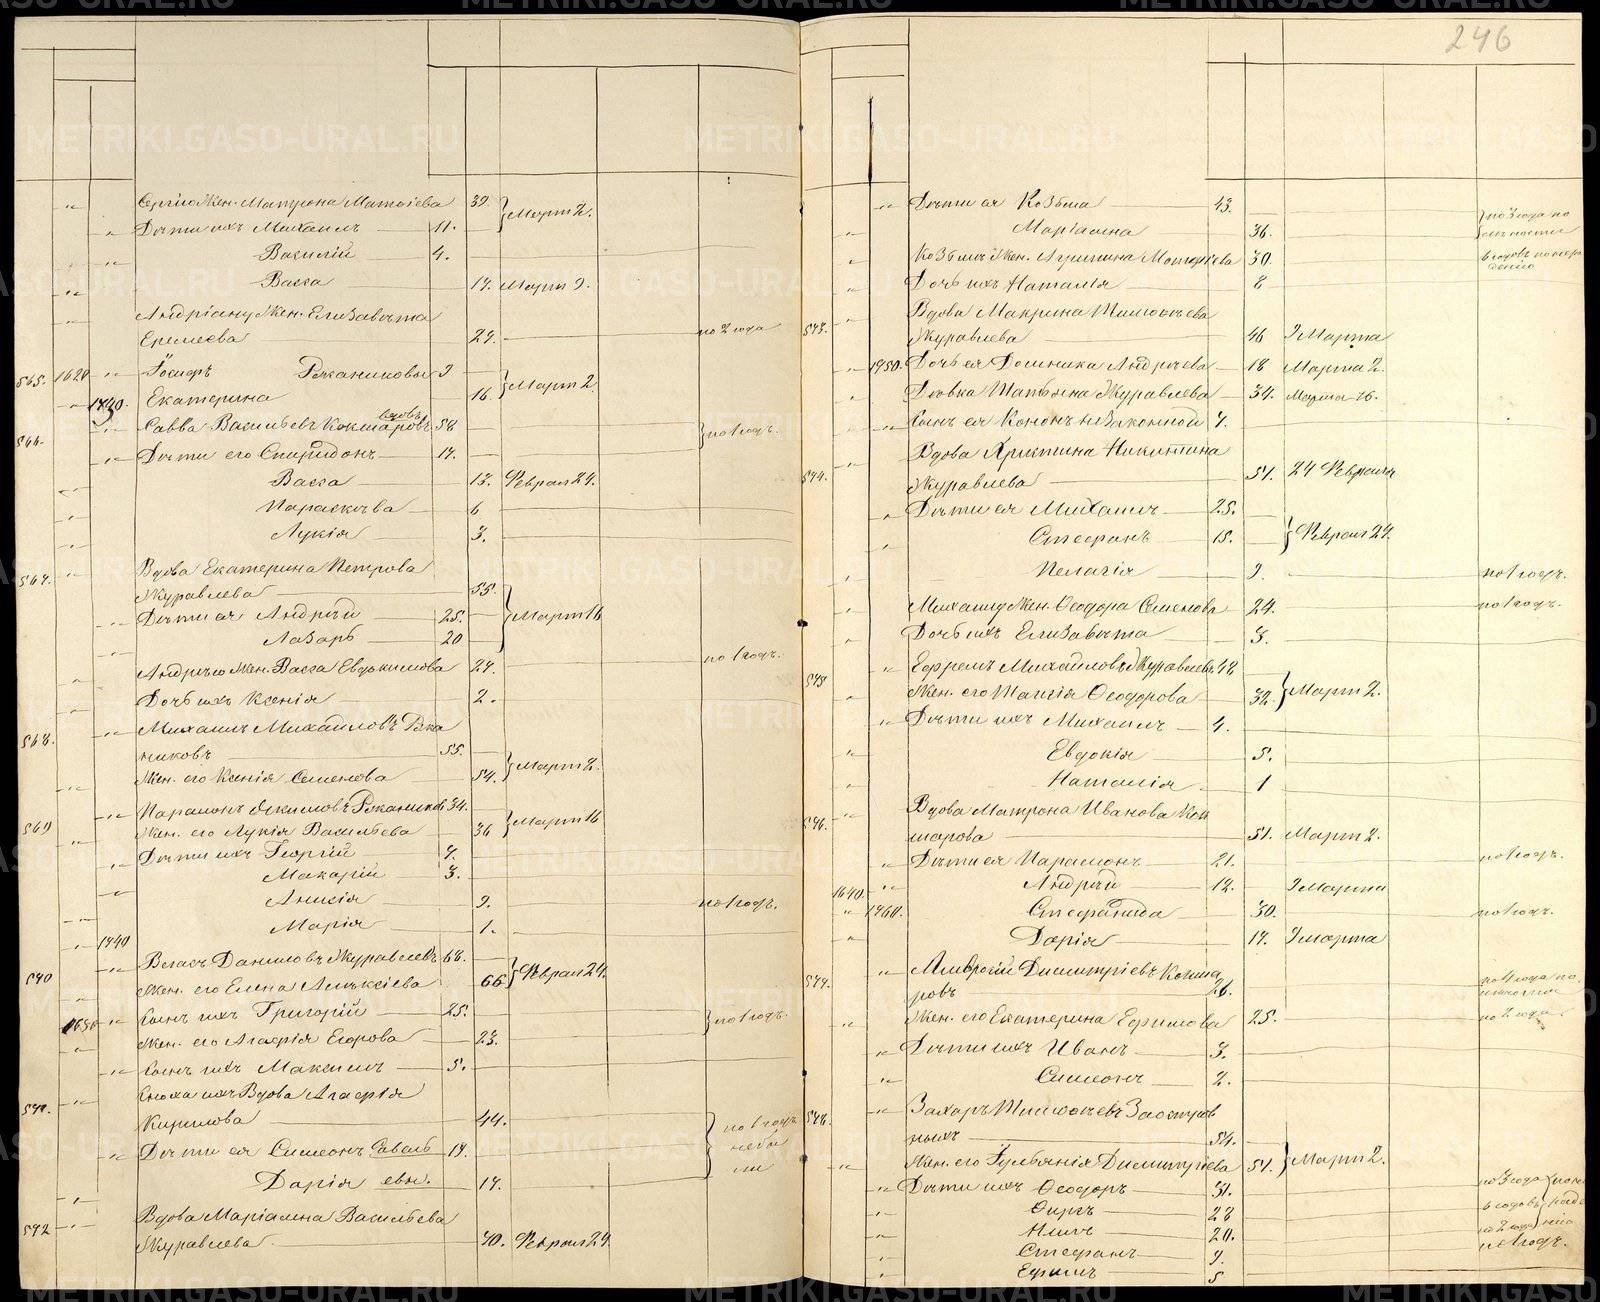 246
Сергію Жен. Матрона Матвіева 39. Март 2.
Дѣти ихъ Михаилъ 11.
Василій 4.
Васса 17. Март 9.
Андріану Жен. Елизавѣта
Еремеева 27. по 2 года
565. 1620 Іосифъ Рѣканиковы 9
Екатерина 16. Март 2
Савва Васильевъ Кокшаровъ вдовъ 58
566. по 1 годъ.
Дѣти его Спиридонъ 17.
Васса 13. Феврал 24.
Параскева 6
Лукія 3.
567. Вдова Екатерина Петрова
Журавлева 55.
Дѣти ея Андрей 25. Март 16
Лазарь 20
по 1 годъ.
Андрею Жен. Васса Евдокимова 27.
Дочь ихъ Ксенія 2.
568. Михаилъ Михайловъ Рѣка
никовъ 55.
Жен. его Ксенія Семенова 54. Март 2.
569 Парамонъ Якимовъ Рѣканиковъ 34.
Жен. его Лукія Васильева 36 Март 16
Дѣти ихъ Георгій 7.
Макарій 3.
Анисія 9. по 1 годъ.
Марія 1.
1940
570 Власъ Даниловъ Журавлевъ 68.
Жен. его Елена Алексіева 66 Феврал 24.
1630 Сынъ ихъ Григорій 25. по 1 годъ.
Жен. его Агафія Егорова 23.
Сынъ ихъ Максимъ 5.
571. Сноха ихъ Вдова Агафія
Кирилова 44. по 1 годъ
Дѣти ея Симеонъ 19. неба
Дарія 17. ли
572 Вдова Маріамна Васильева
Журавлева. 70. Феврал 24.
Дѣти ея Козьма 43. по 3 года по
Маріамна 36.
Козьмы Жен. Агрипина Матѳіева 30.
Дочь ихъ Наталія 8
573. Вдова Макрина Тимоѳеева
Журавлева 46 9 Марта
1950. Дочь ея Домника Андреева 18 Марта 2.
Дѣвка Татьяна Журавлева 34. Марта 16.
Сынъ ея Кононъ незаконной 7.
574. Вдова Христина Никитина
Журавлева 51. 24 Февраля
Дѣти ея Михаилъ 25.
Стефанъ 15. Феврал 24.
Пелагія 9. по 1 годъ.
Михаилу Жен. Ѳеодора Семенова 24. по 1 годъ.
Дочь ихъ Елизавѣта 3.
575 Ефремъ Михайловъ Журавлевъ 48
Жен. его Таисія Ѳеодорова 32. Март 2.
Дѣти ихъ Михаилъ 4.
Евдокія 5.
Наталія 1
576. Вдова Матрона Иванова Кок
шарова 51. Март 2.
Дѣти ея Парамонъ 21. по 1 годъ.
1640. Андрей 12. 9 Марта
1960. Стефанида 30. по 1 годъ.
Дарія 17. 9 марта
577. Амвросій Димитріевъ Кокша
ровъ 26.
Жен. его Екатерина Ефимова 25. по 2 года.
Дѣти ихъ Иванъ 3.
Симеонъ 2.
578. Захаръ Тимоѳеевъ Заостров
ныхъ 54.
Жен. его Гульянія Димитріева 51. Март 2.
Дѣти ихъ Ѳеодоръ 31. по 3 года
Фирсъ 28
Нилъ 20. по 2 года
Стефанъ 9. по 1 годъ.
Ефимъ 5
METRIKI.GASO-URAL.RU